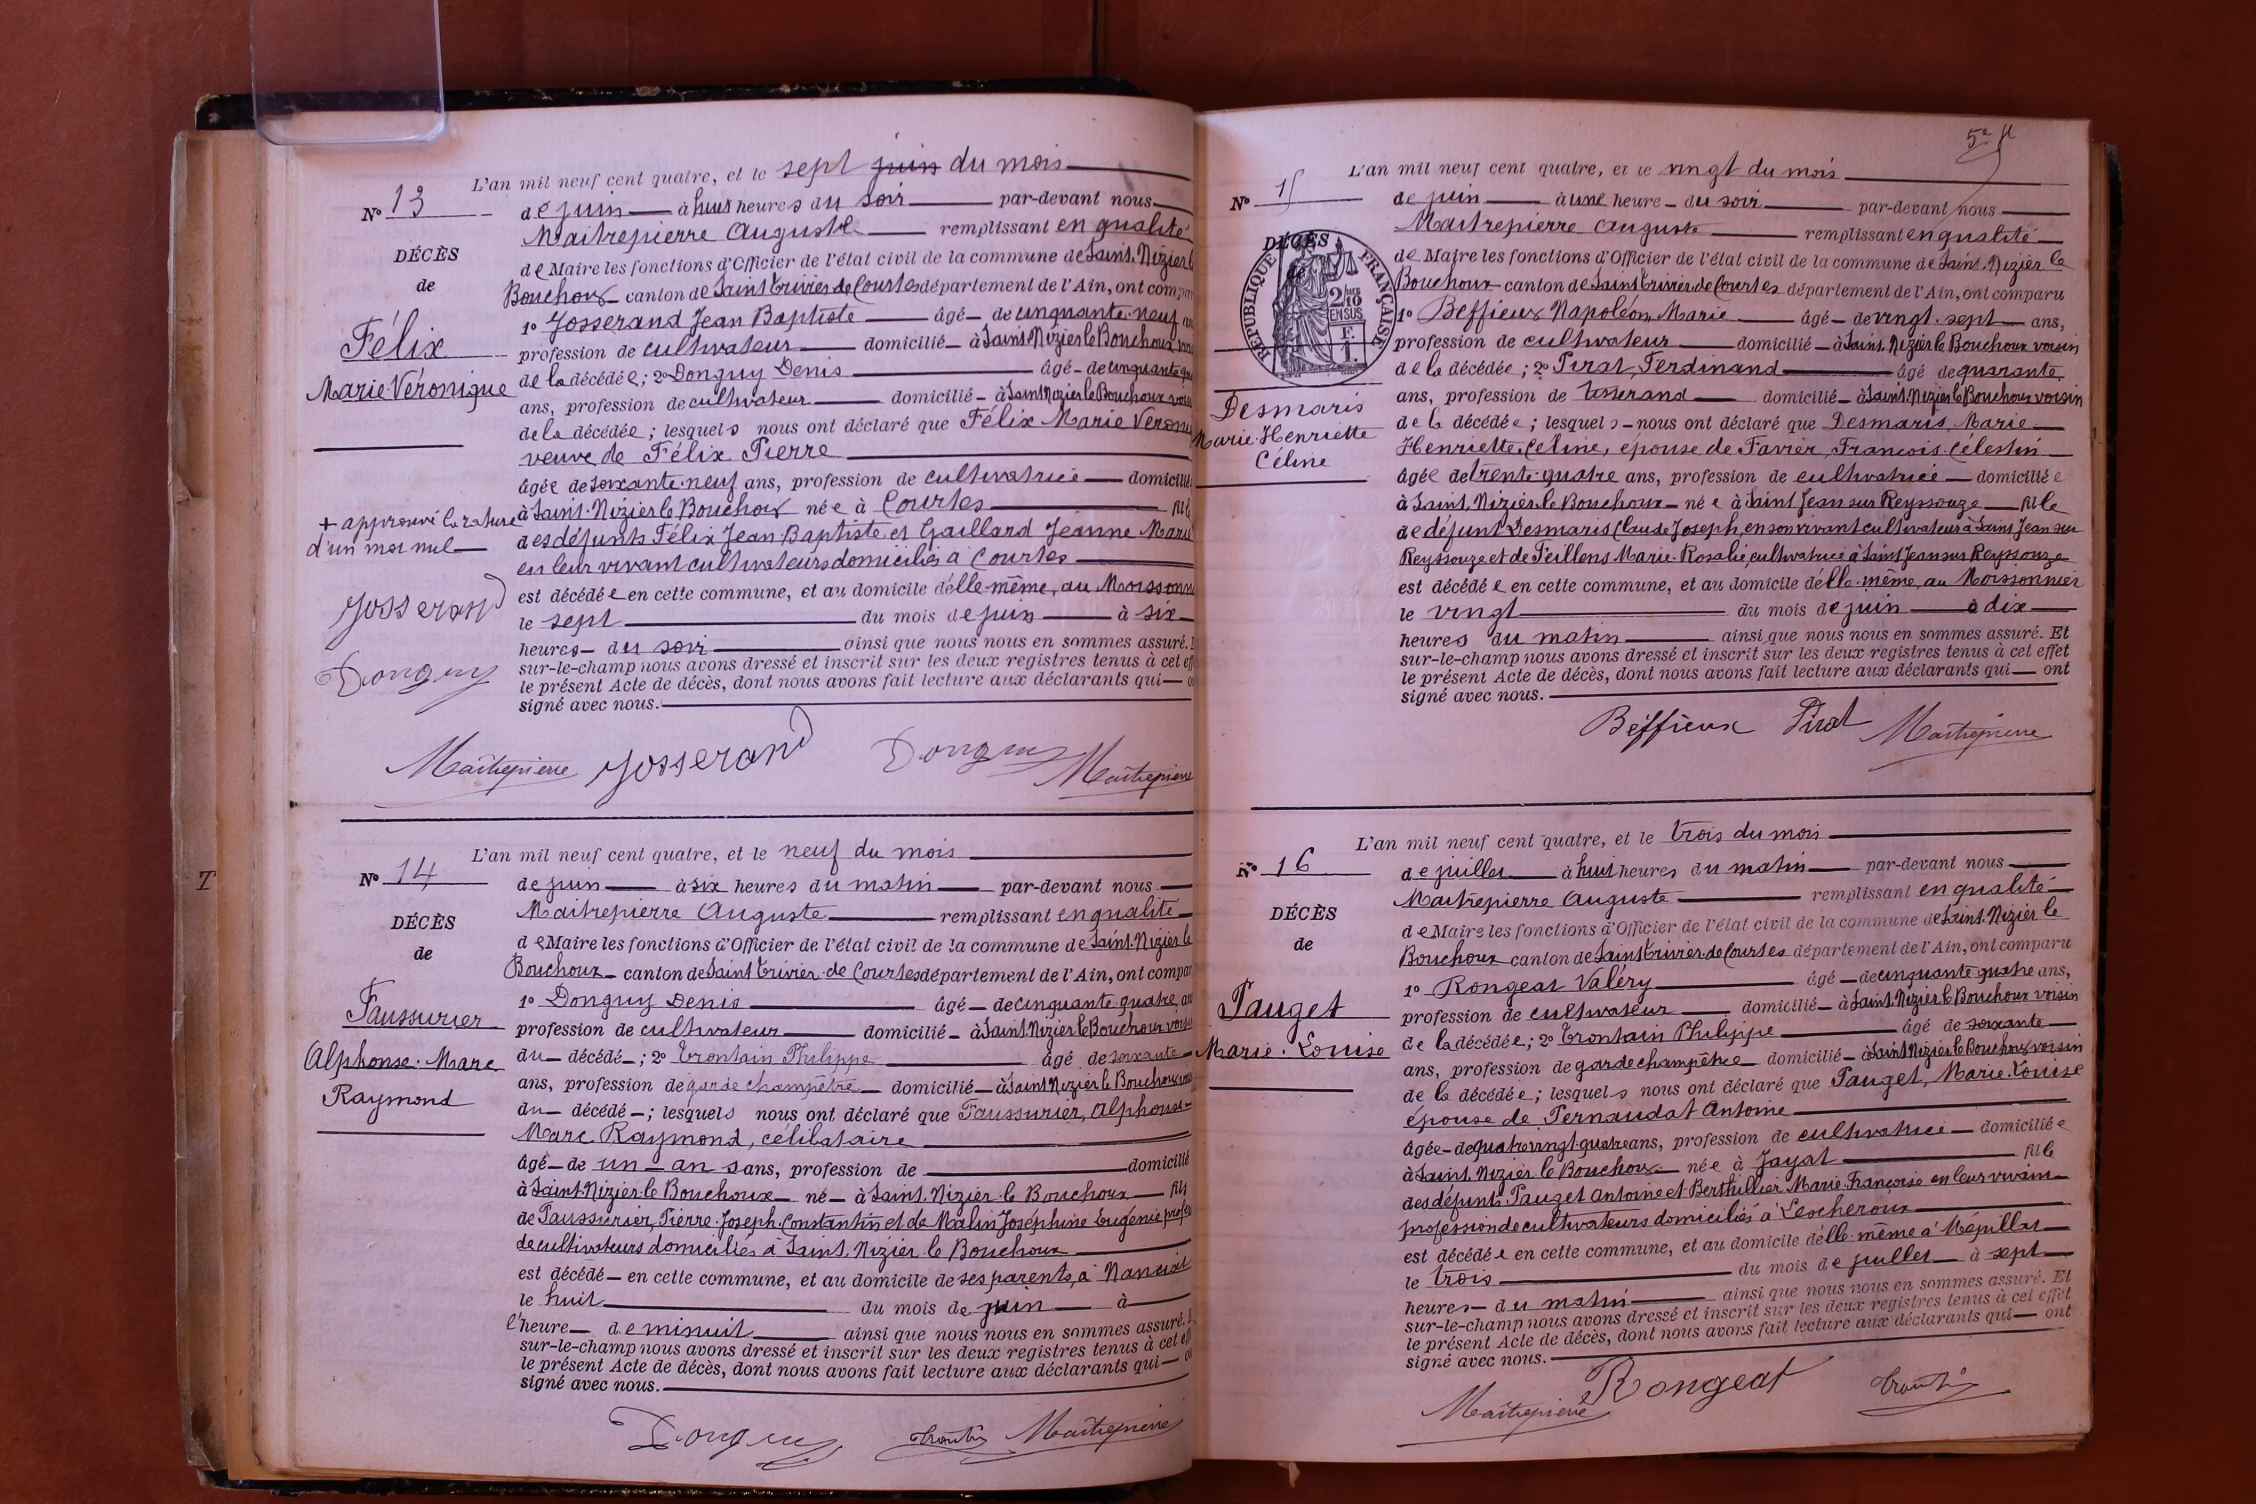 L'an mil neuf cent quatre, et le sept juin du mois
No 13
de juin à huit heures du soir par-devant nous
Maitrepierre Auguste remplissant en qualité
DÉCÈS
de Maire les fonctions d'Officier de l'état civil de la commune de Saint-Nizier le
de
Bouchoux canton de Saint Trivier de Courtes département de l'Ain, ont comparu
1o Josserand Jean Baptiste âgé de cinquante-neuf
Félix
profession de cultivateur domicilié à Saint Nizier le Bouchoux
Marie Véronique
de la décédée; 2o Donguy Denis âgé de cinquante
ans, profession de cultivateur domicilié à Saint Nizier le Bouchoux voisin
de la décédée; lesquels nous ont déclaré que Félix Marie
veuve de Félix Pierre
âgée de soixante-neuf ans, profession de cultivatrice domicilié
+ approuvé la rature
à Saint-Nizier le Bouchoux née à Courtes fille
d'un mot nul
des défunts Félix Jean Baptiste et Gaillard Jeanne Marie
en leur vivant cultivateurs domiciliés à Courtes
est décédée en cette commune, et au domicile d'elle-même, au
Josserand
le sept du mois de juin à six
heures du soir ainsi que nous nous en sommes assuré.
Donguy
sur-le-champ nous avons dressé et inscrit sur les deux registres tenus à cet
le présent Acte de décès, dont nous avons fait lecture aux déclarants qui
signé avec nous.
Maitrepierre Josserand Donguy Maitrepierre
L'an mil neuf cent quatre, et le neuf du mois
No 14
de juin à six heures du matin par-devant nous
Maitrepierre Auguste remplissant en qualité
DÉCÈS
de Maire les fonctions d'Officier de l'état civil de la commune de Saint-Nizier le
de
Bouchoux canton de Saint Trivier de Courtes département de l'Ain, ont compar
1o Donguy Denis âgé de cinquante quatre
Faussurier
profession de cultivateur domicilié à Saint Nizier le Bouchoux voisin
Alphonse Marc
du décédé; 2o Trontain Philippe âgé de soixante
Raymond
ans, profession de garde champêtre domicilié à Saint Nizier le Bouchoux
du décédé; lesquels nous ont déclaré que Faussurier, Alphonse
Marc Raymond, célibataire
âgé de un an sans, profession de domicilié
à Saint-Nizier-le Bouchoux né à Saint Nizier le Bouchoux fils
de Faussurier, Pierre Joseph Constantin et de Malin Joséphine Eugénie
de cultivateurs domiciliés à Saint Nizier le Bouchoux
est décédé en cette commune, et au domicile de ses parents, à Nanciat
le huit du mois de juin à
l'heure de minuit ainsi que nous nous en sommes assuré.
sur-le-champ nous avons dressé et inscrit sur les deux registres tenus à cet
le présent Acte de décès, dont nous avons fait lecture aux déclarants qui
signé avec nous.
Donguy Maitrepierre
5e
L'an mil neuf cent quatre, et le vingt du mois
No 15
de juin à une heure du soir par-devant nous
Maitrepierre Auguste remplissant en qualité
DÉCÈS
de Maire les fonctions d'Officier de l'état civil de la commune de Saint-Nizier le
RÉPUBLIQUE FRANÇAISE
2/10 EN SUS
F. 1.
Bouchoux canton de Saint Trivier de Courtes département de l'Ain, ont comparu
1o Beffieux Napoléon, Marie âgé de vingt-sept ans,
profession de cultivateur domicilié à Saint Nizier le Bouchoux voisin
de la décédée; 2o Pirat, Ferdinand âgé de quarante
Desmaris
ans, profession de tisserand domicilié à Saint Nizier le Bouchoux voisin
Marie-Henriette
de la décédée; lesquels nous ont déclaré que Desmaris, Marie
Céline
Henriette, Céline, épouse de Favier, François-Célestin
âgée de trente-quatre ans, profession de cultivatrice domiciliée
à Saint Nizier le Bouchoux née à Saint Jean sur Reyssouze fille
de défunt Desmaris Claude Joseph, en son vivant cultivateur à Saint Jean sur
Reyssouze et de Feillens Marie-Rosalie, cultivatrice à Saint Jean sur Reyssouze
est décédée en cette commune, et au domicile d'elle-même, au Moissonnier
le vingt du mois de juin à dix
heures du matin ainsi que nous nous en sommes assuré. Et
sur-le-champ nous avons dressé et inscrit sur les deux registres tenus à cet effet
le présent Acte de décès, dont nous avons fait lecture aux déclarants qui ont
signé avec nous.
Béffieux Pirat Maitrepierre
L'an mil neuf cent quatre, et le trois du mois
No 16
de juillet à huit heures du matin par-devant nous
Maitrepierre Auguste remplissant en qualité
DÉCÈS
de Maire les fonctions d'Officier de l'état civil de la commune de Saint-Nizier le
de
Bouchoux canton de Saint Trivier de Courtes département de l'Ain, ont comparu
1o Rongeat Valéry âgé de cinquante quatre ans,
Pauget
profession de cultivateur domicilié à Saint-Nizier le Bouchoux voisin
Marie-Louise
de la décédée; 2o Trontain Philippe âgé de soixante
ans, profession de garde champêtre domicilié à Saint Nizier le Bouchoux voisin
de la décédée; lesquels nous ont déclaré que Pauget, Marie-Louise
épouse de Pernaudat Antoine
âgée de quatre vingt quatre ans, profession de cultivatrice domiciliée
à Saint Nizier le Bouchoux née à Jayat fille
des défunts Pauget Antoine et Berthillier Marie-Françoise en leur vivant
profession de cultivateurs domiciliés à Lescheroux
est décédée en cette commune, et au domicile d'elle-même à Mépillat
le trois du mois de juillet à sept
heures du matin ainsi que nous nous en sommes assuré. Et
sur-le-champ nous avons dressé et inscrit sur les deux registres tenus à cet effet
le présent Acte de décès, dont nous avons fait lecture aux déclarants qui ont
signé avec nous.
Maitrepierre Rongeat
T